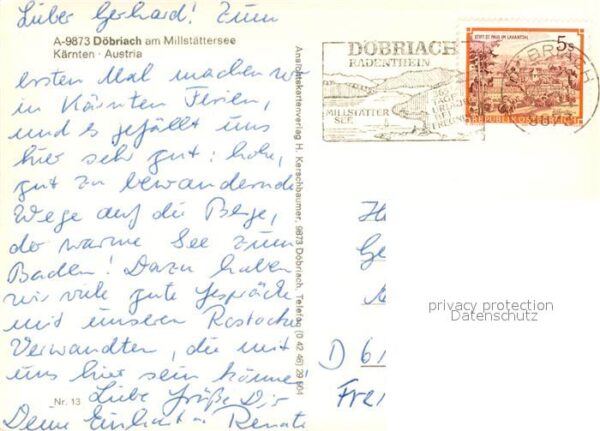 Lieber Gerhard! Zum
A-9873 Döbriach am Millstättersee
Kärnten · Austria
ersten Mal machen wir
in Kärnten Ferien,
und es gefällt uns
hier sehr gut: hohe,
gut zu bewandernde
Wege auf die Berge,
der warme See zum
Baden! Dazu haben
wir viele gute Gespräche
mit unseren Rostocker
Verwandten, die mit
uns hier sein können!
Nr. 13
Liebe Grüße Dir
Deine Einhart + Renate
Ansichtskartenverlag H. Kerschbaumer, 9873 Döbriach, Telefon (0 42 46) 29 604
DÖBRIACH
RADENTHEIN
MILLSTÄTTER
SEE
STIFT ST. PAUL IM LAVANTTAL
5 S
REPUBLIK ÖSTERREICH
privacy protection
Datenschutz
D 61
Frei